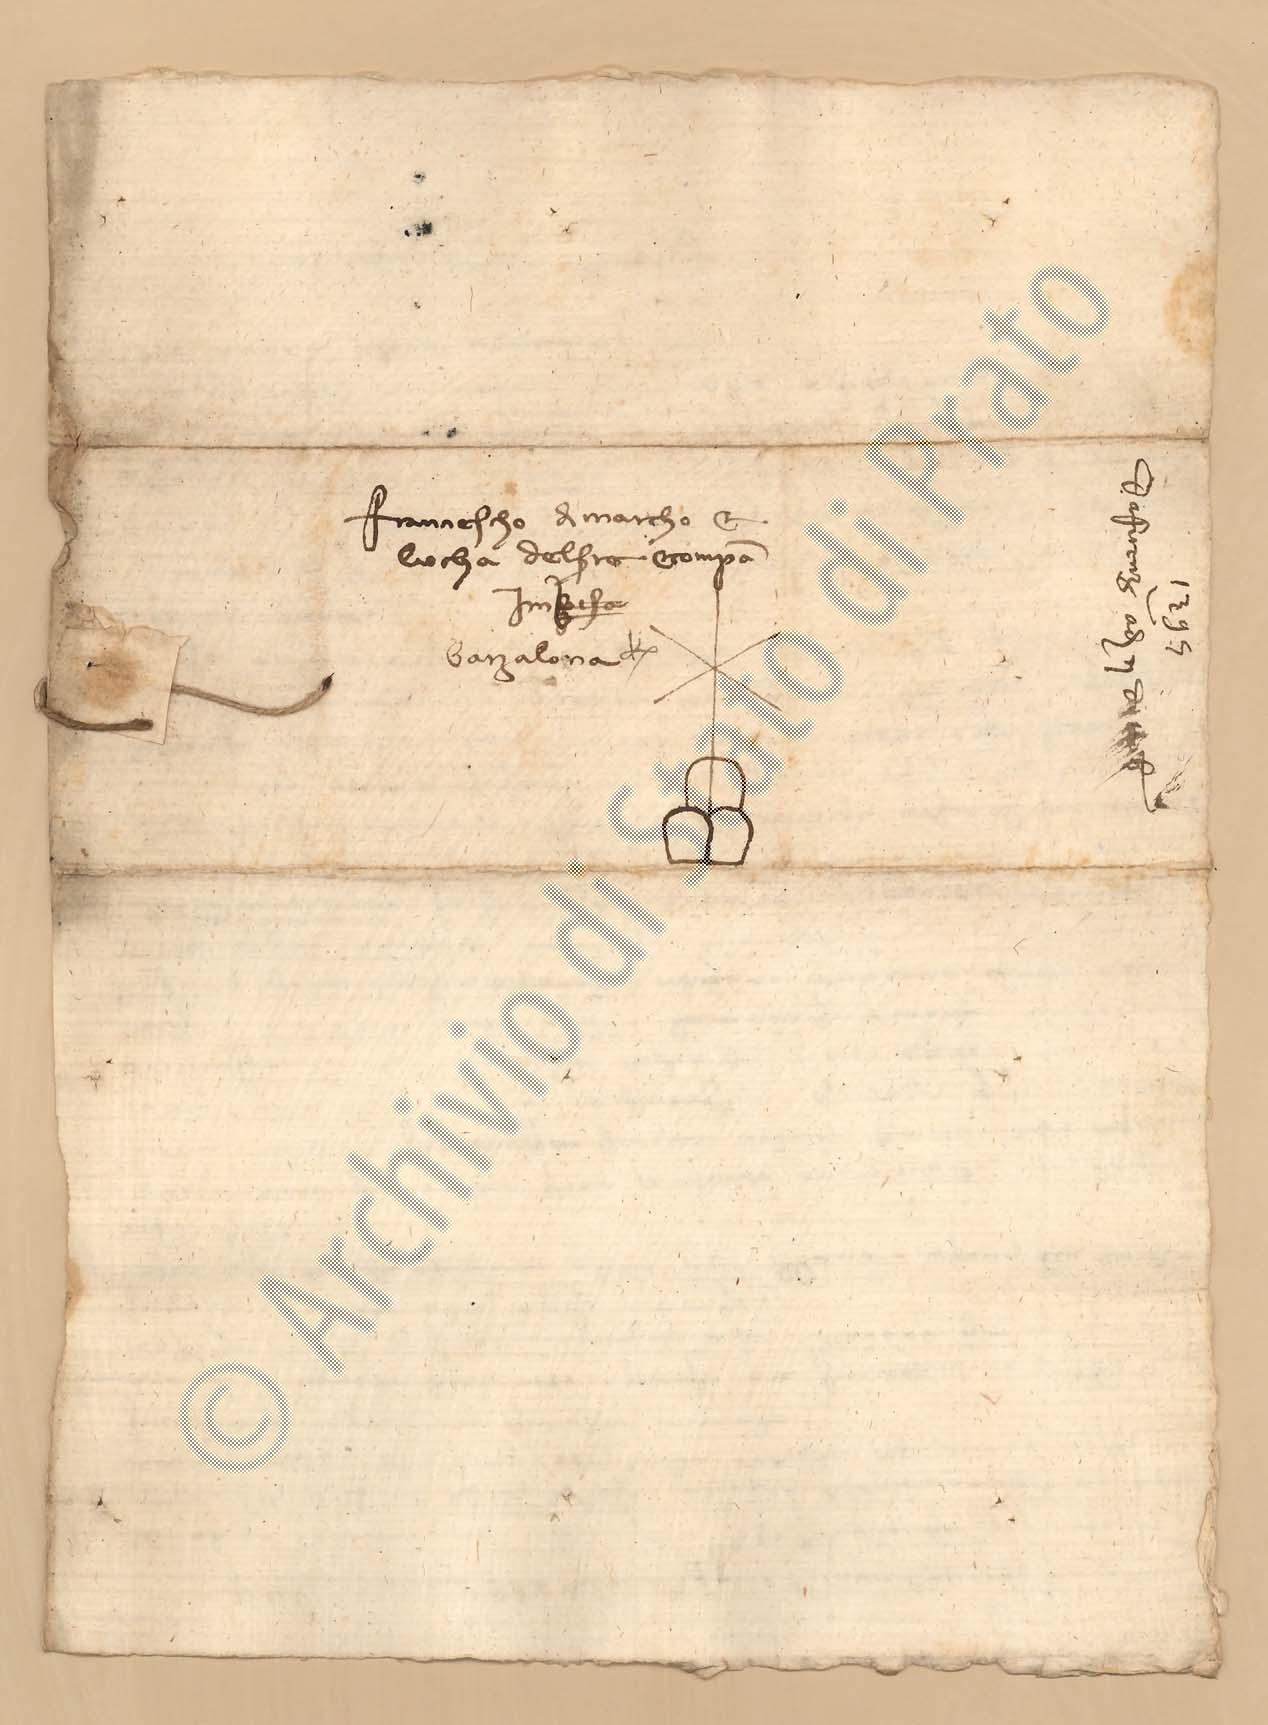 Francescho di marcho e
Locha del sera e compa
In
Barzalona
1395
Da firenze adi
© Archivio di Stato di Prato